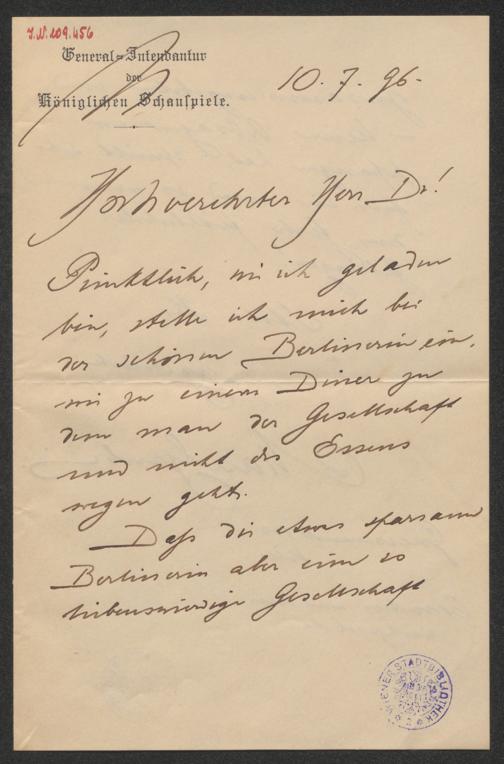 J.N. 109.456
General-Intendantur
der
Königlichen Schauspiele.
10. 7. 96.
Hochverehrter Herr Dr!
Pünktlich, wie ich geladen
bin, stelle ich mich bei
der schönen Berlinerin ein,
wie zu einem Diner zu
dem man der Gesellschaft
und nicht des Essens
wegen geht.
Daß die etwas sparsame
Berlinerin aber eine so
liebenswürdige Gesellschaft
WIENER STADTBIBLIOTHEK